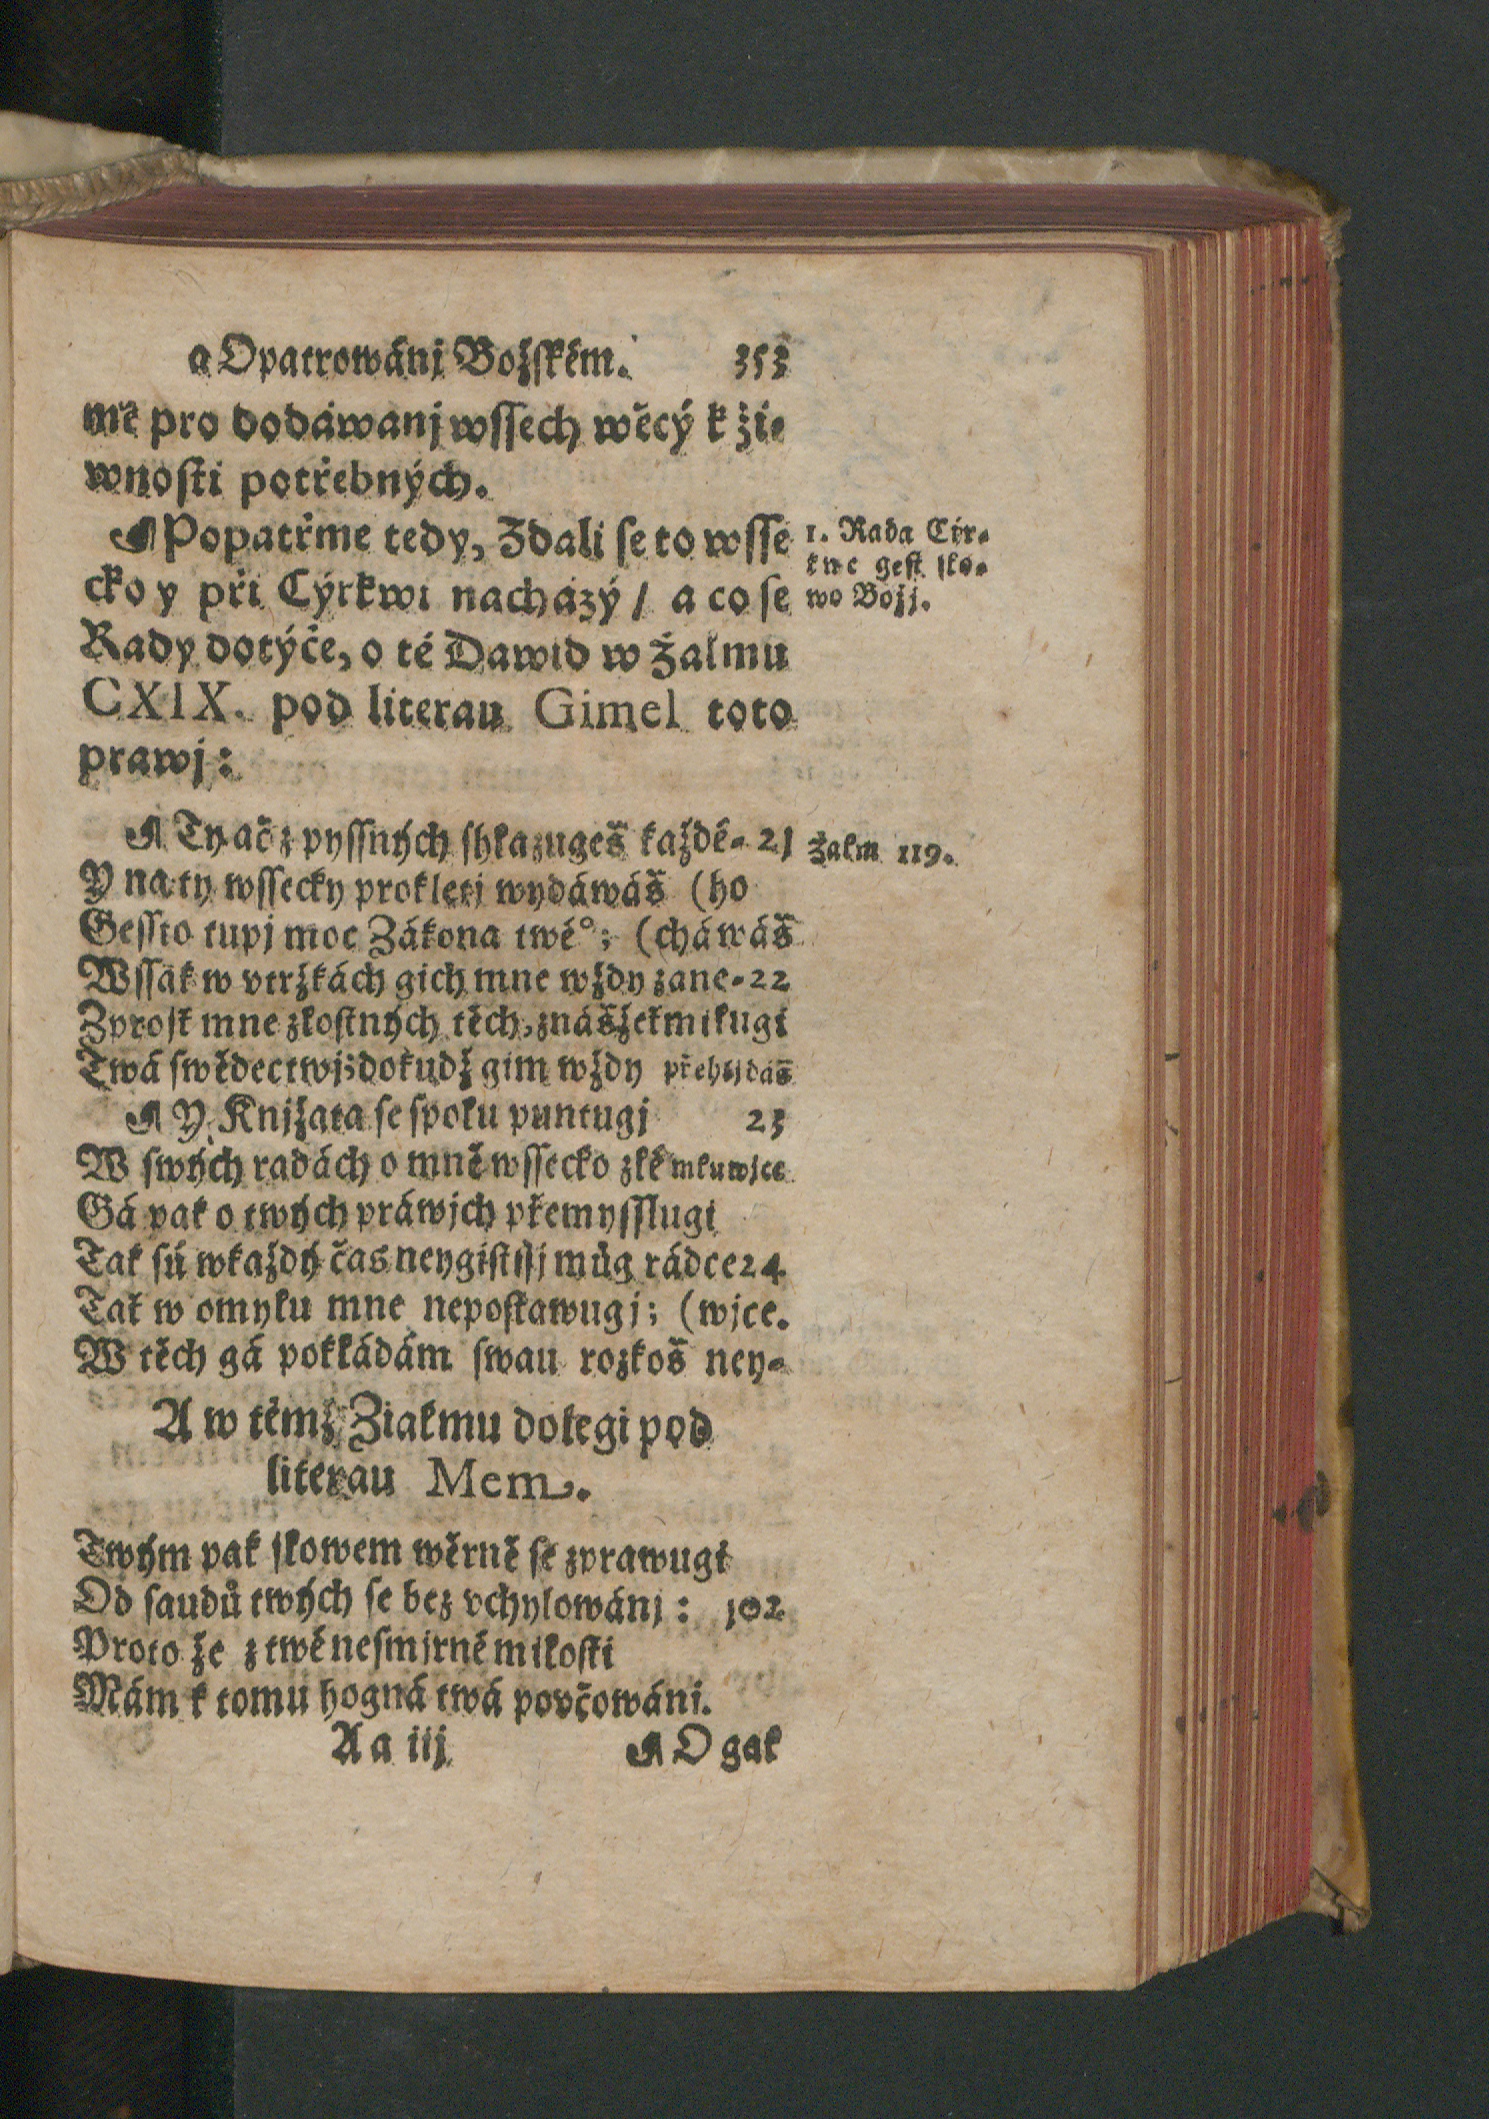 a Opatrowánj Božském. 353
mě pro dodáwanj wssech wěcý k ži-
wnosti potřebných.
¶ Popatřme tedy, Zdali se to wsse
cko y při Cýrkwi nacházý / a co se
1. Rada Cýr-
kwe gest slo-
wo Božj.
Rady dotýče, o té Dawid w Žalmu
CXIX. pod literau Gimel toto
prawj:
¶ Ty ač z pyssných shlazugeš každé- 21
Žalm 119.
Y na ty wssecky prokletj wydáwáš (ho
Gessto tupj moc Zákona twé°: (cháwáš
Wssak w vtržkách gich mne wždy zane- 22
Zprosť mne zlostných těch, znáš žeť milugi
Twá swědectwj; dokudž gim wždy přehljdáš
¶ Y Knjžata se spolu puntugj 23
W swých radách o mně wssecko zlé mluwjce
Gá pak o twých práwjch přemysslugi
Tak sú wkaždý čas neygistssj můg rádce 24
Tať w omylu mne nepostawugj; (wjce.
W těch gá pokládám swau rozkoš ney-
A w témž Žialmu dolegi pod
literau Mem.
Twým pak slowem wěrně se zprawugi
Od saudů twých se bez vchylowánj: 102
Proto že z twé nesmjrné milosti
Mám k tomu hogná twá povčowáni.
A a iij ¶ O gak